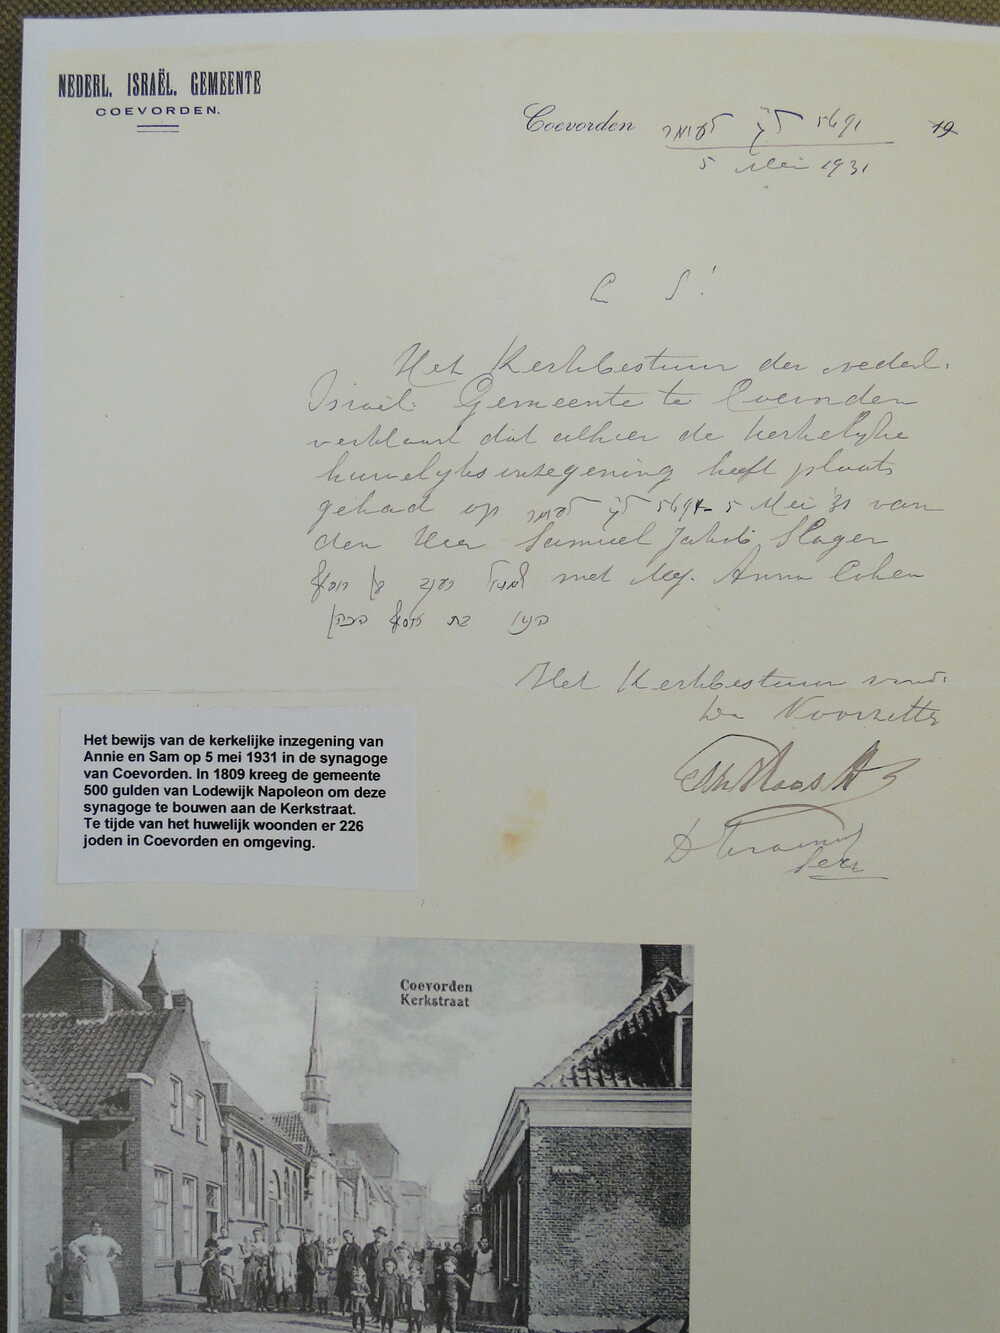 NEDERL. ISRAËL. GEMEENTE
COEVORDEN.
Coevorden לעומר ל״ג 5691 19
5 Mei 1931
L S!
Het Kerkbestuur der Nederl.
Israël. Gemeente te Coevorden
verklaart dat alhier de kerkelijke
huwelijksinzegening heeft plaats
gehad op לעומר ל״ג 5691 5 Mei '31 van
den Heer Samuel Jakob Slager
met Mej. Anna Cohen
בת יוסף הכהן
Het Kerkbestuur voorn.
De Voorzitter
Het bewijs van de kerkelijke inzegening van
Annie en Sam op 5 mei 1931 in de synagoge
van Coevorden. In 1809 kreeg de gemeente
500 gulden van Lodewijk Napoleon om deze
synagoge te bouwen aan de Kerkstraat.
Te tijde van het huwelijk woonden er 226
joden in Coevorden en omgeving.
Coevorden
Kerkstraat